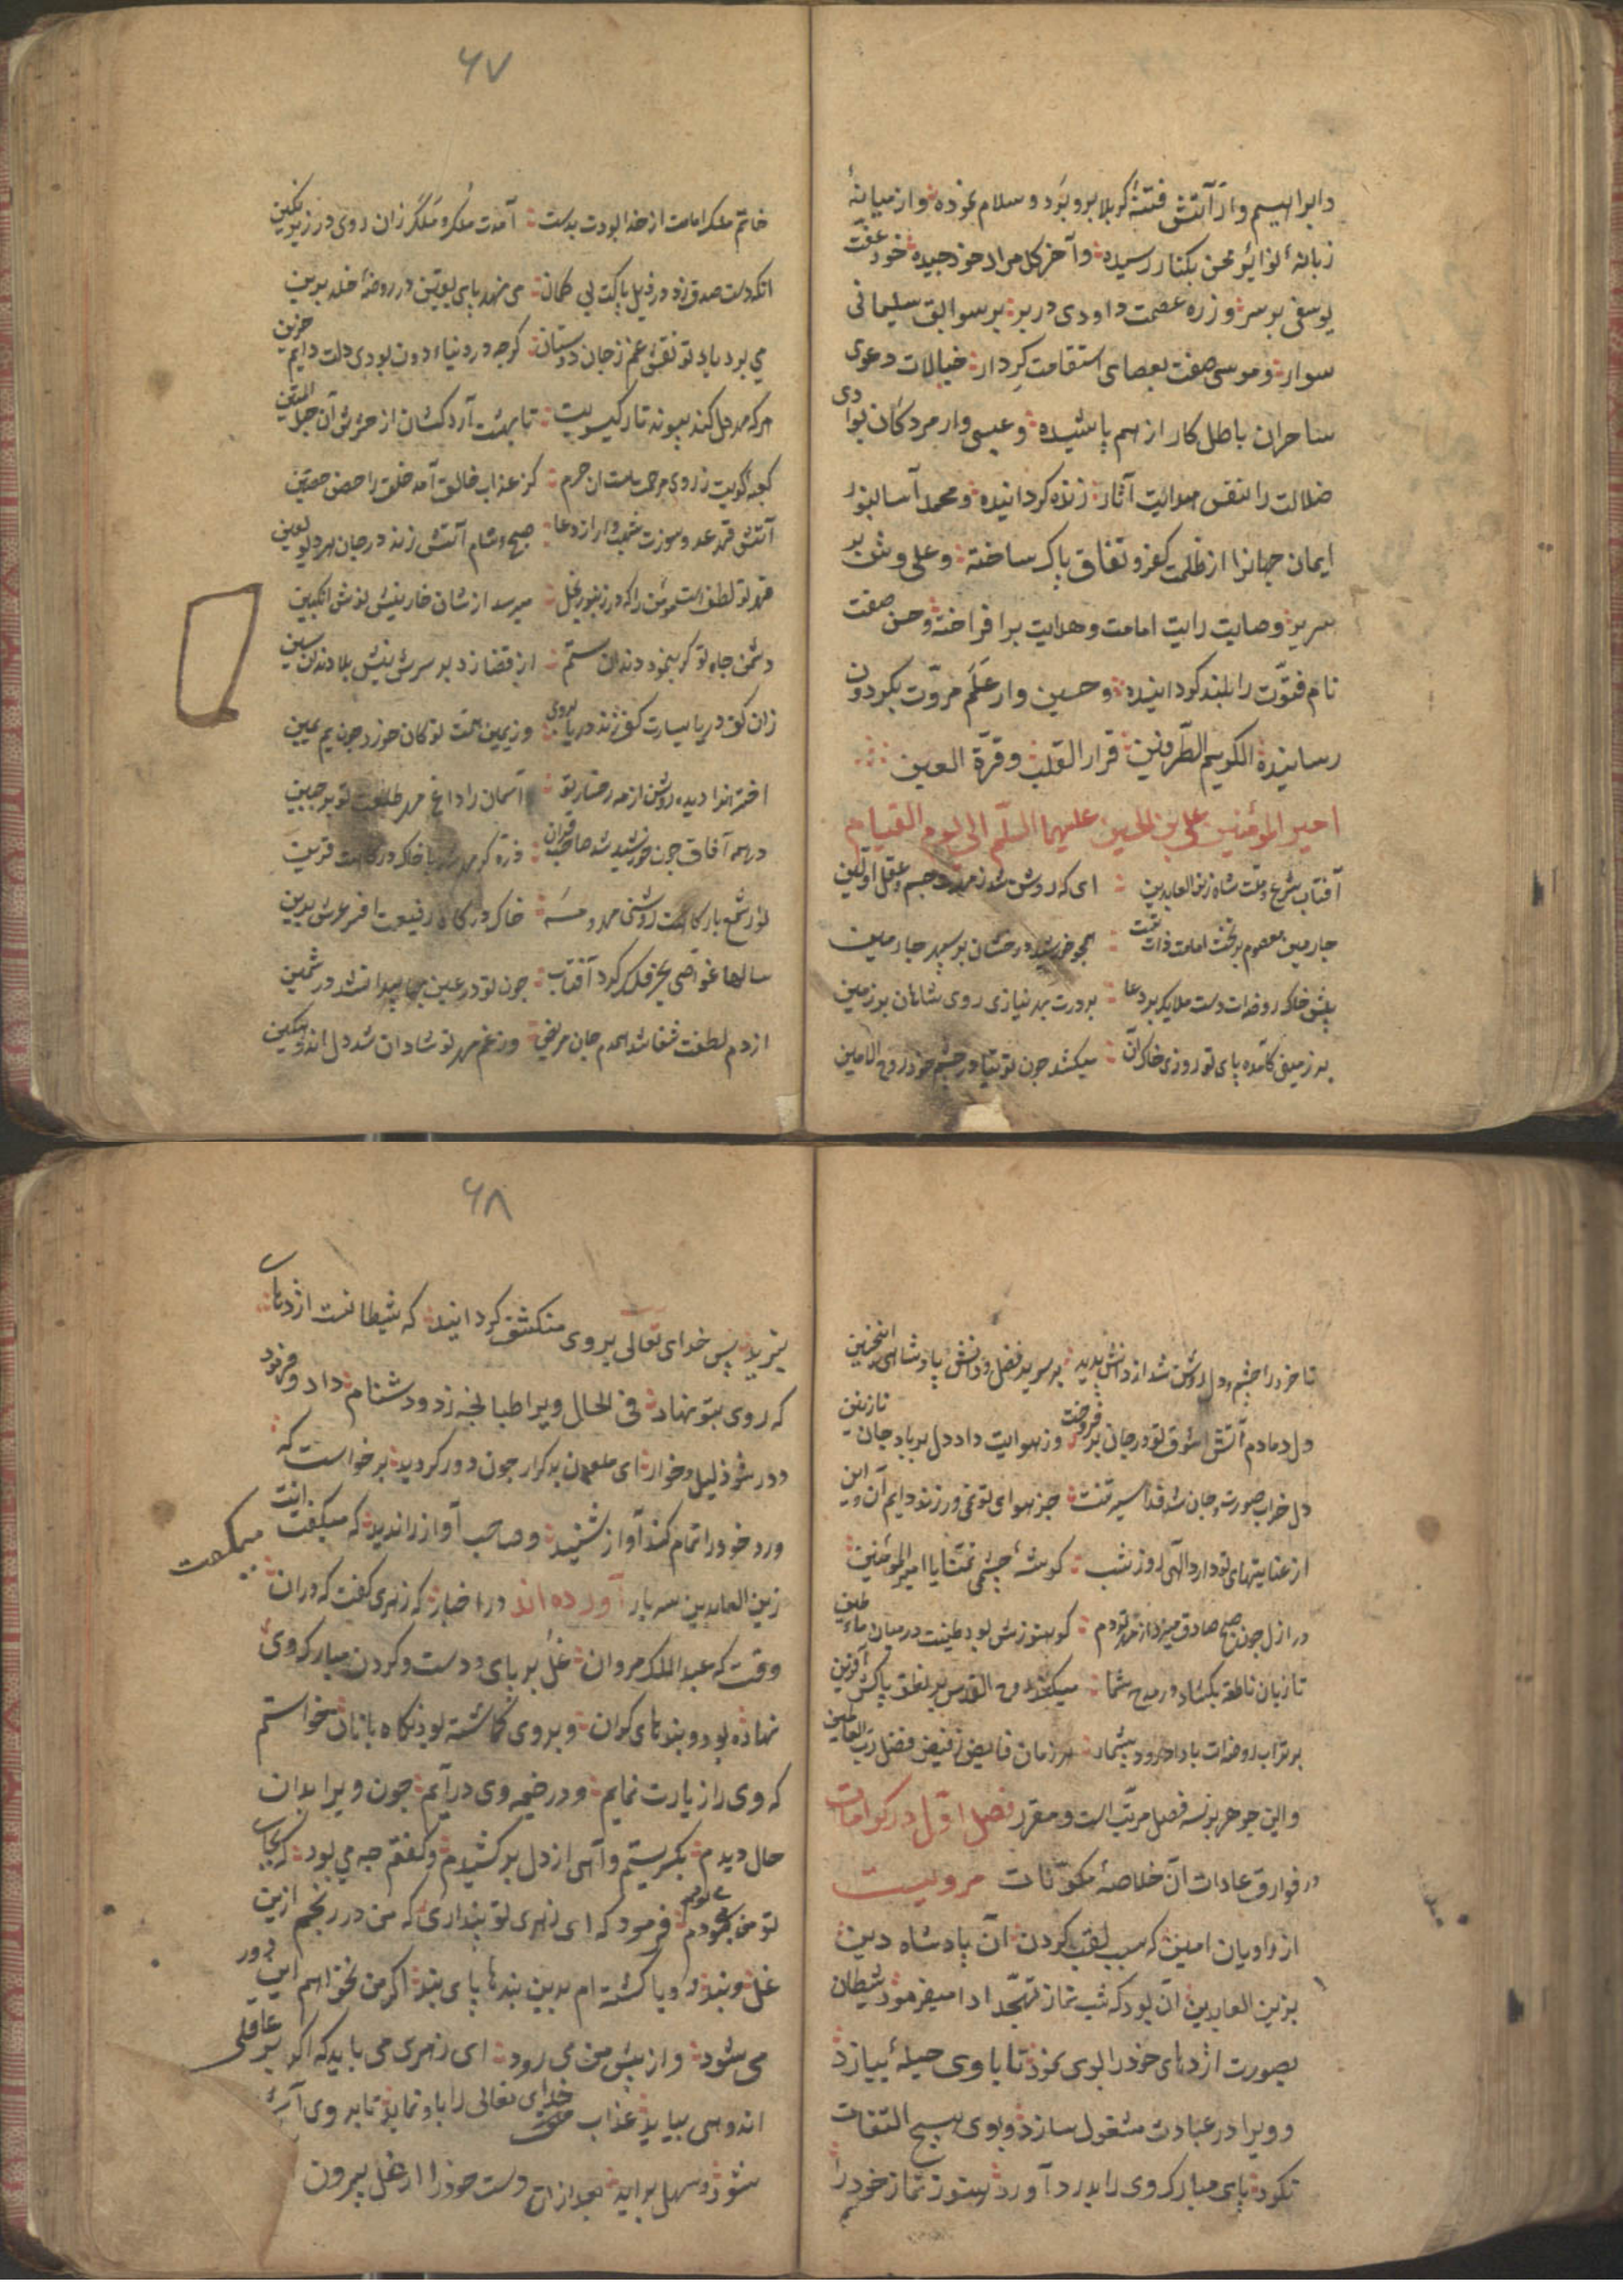 و ابراهیم وار آتش فتنهٔ کربلا برو بَرد و سلام نموده و از میانهٔ
زبانهٔ نوایر محن بکنار رسیده و آخر گل مراد خود چیده خود عفّت
یوسفی بر سر و زره عصمت داودی در بر بر سوابق سلیمانی
سوار و موسی صفت بعصای استقامت کردار خیالات دعوی
ساحران باطل کار از هم پاشیده و عیسی وار مردکان بوادی
ضلالت را بنفس هدایت آثار زنده کردانیده و محمد آسا بنور
ایمان جهانرا از ظلمت کفر و نفاق پاک ساخته و علی وش بر
سریر وصایت رایت امامت و هدایت برافراخته و حسن صفت
نام فتوّت را بلند کردانیده و حسین وار عَلَم مروّت بکردون
رسانیده الکریم الطرفین قرار القلب و قرّة العین
امیر المؤمنین علی بن الحسین علیهما السلّم الی یوم القیام
آفتاب شرع و ملت شاه زین العابدین ای که روشن شد ز مهرت جسم و عقل اولین
چارمین معصوم بر تخت امامت ذات تست همچو خورشید درخشان بر سپهر چارمین
پیش خاک روضه‌ات دست ملایک بر دعا بر درت بهر نیازی روی شاهان بر زمین
بر زمینی کآمده پای تو روزی خاک آن میکشد چون توتیا در چشم خود روح الامین
۶۷
خاتم ملک امامت از خدا بودت بدست آمدت مُلک و مَلَک زان روی در زیر نکین
آنکه دست صدق زد در ذیل پاکت بی کمان می نهد پای یقین در روضهٔ خلد برین
می برد یاد تو نقش غم ز جان دوستان کرچه در دنیاء دون بودی دلت دایم حزین
هرکه مهر دل کند پیوند تار کیسویت تا بهشت آرد کشان از حشرش آن حبل المتین
کعبهٔ کویت ز روی مرحمت است آن حرم کز عذاب خالق آمد خلق را حصن حصین
آتش قهر عدو سوزت شهاب وار از دعا صبح و شام آتش زند در جان هر دیو لعین
قهر تو لطفست مومن را که در زنبور نحل میرسد از شان خار نیش نوش انکبین
دشمن جاه تو کر بنمود دندان ستم از قضا زد بر سرش نیش بلا دندان سین
زان کف دریا یسارت کف زند دریا بروی وز یمین همّت تو کان خورد چون یم یمین
اخترانرا دیده روشن از مه رخسار تو آسمان را داغ مهر طلعت تو بر جبین
در همه آفاق چون خورشید شد صاحب قران ذرّه کز مهر شد با خاک درکاهت قرین
نور شمع بارکاهت روشنی مهر و مه خاک درکاه رفیعت افسر عرش برین
سالها غوّاصی بحر فلک کرد آفتاب چون تو در عین جهان پیدا نشد در ثمین
از دم لطفت شفا شد همدم جان مریض وز غم مهر تو شادان شد دل اندوهکین
تا خرد را چشم و دل روشن شد از دانش پدید بر سریر فضل و دانش پادشاهی اینچنین
ول دمادم آتش شوق تو در جان بر فروخت وز هوایت داد دل بر باد جان نازنین
دل خراب صورت و جان شد فدا سیرتت جز هوای تو نمی ورزند دایم آن و این
از عنایتهای تو دارد الهی روز و شب کوشهٔ چشمی تمنّا یا امیر المؤمنین
در ازل چون صبح صادق میزد از مهر تو دم کو هنوزش بود طینت در میان ماء و طین
تا زبان ناطقه بکشاد در مدح شما میکند روح القدس بر نطق پاکش آفرین
بر تراب روضه‌ات بادا درود بیشمار هر زمان فایض ز فیض فضل رب العالمین
و این جوهر بر نه فصل مرتّب است و مقرر فصل اوّل در کرامات
و خوارق عادات آن خلاصهٔ مکوّنات مرویست
از راویان امین که سبب لقب کردن آن پادشاه دین
بزین العابدین آن بود که شب نماز تهجّد ادا میفرمود شیطان
بصورت اژدهای خود را بوی نمود تا با وی حیلهٔ بیازد
و ویرا در عبادت مشغول سازد و بوی هیچ التفات
نکرد پای مبارک وی را بدرد آورد هنوز نماز خود را
۶۸
نبرید پس خدای تعالی بر وی منکشف کردانید که شیطانست اژدهای
که روی بتو نهاد فی الحال ویرا طبانچه زد و دشنام داد و فرمود
دور شو ذلیل و خوار ای ملعون بدکردار چون دور کردید برخواست که
ورد خود را تمام کند آواز شنید و صاحب آواز را ندید که میکفت انت
زین العابدین سه بار آورده‌اند در اخبار که زهری کفت که در آن
وقت که عبد الملک مروان غل بر پای و دست و کردن مبارک وی
نهاده بود و بندهای کران و بر وی کماشته بود نکاه بانان میخواستم
که وی را زیارت نمایم و در خیمه وی در آیم چون ویرا بدان
حال دیدم بکریستم و آهی از دل برکشیدم و کفتم چه می بود که بجای
تو من می بودم فرمود که ای زهری تو پنداری که من در رنجم ازین
غل و بند و یا کشته ام بدین بندها پای بند اکر من نخواهم این دور
می شود و از پیش من می رود ای زهری می باید که اکر بر عاقلی
اندوهی بیاید عذاب خدای تعالی را باو نماید تا بر وی آسان
شود و سهل برآید بعد از آن دست خود را از غل بیرون